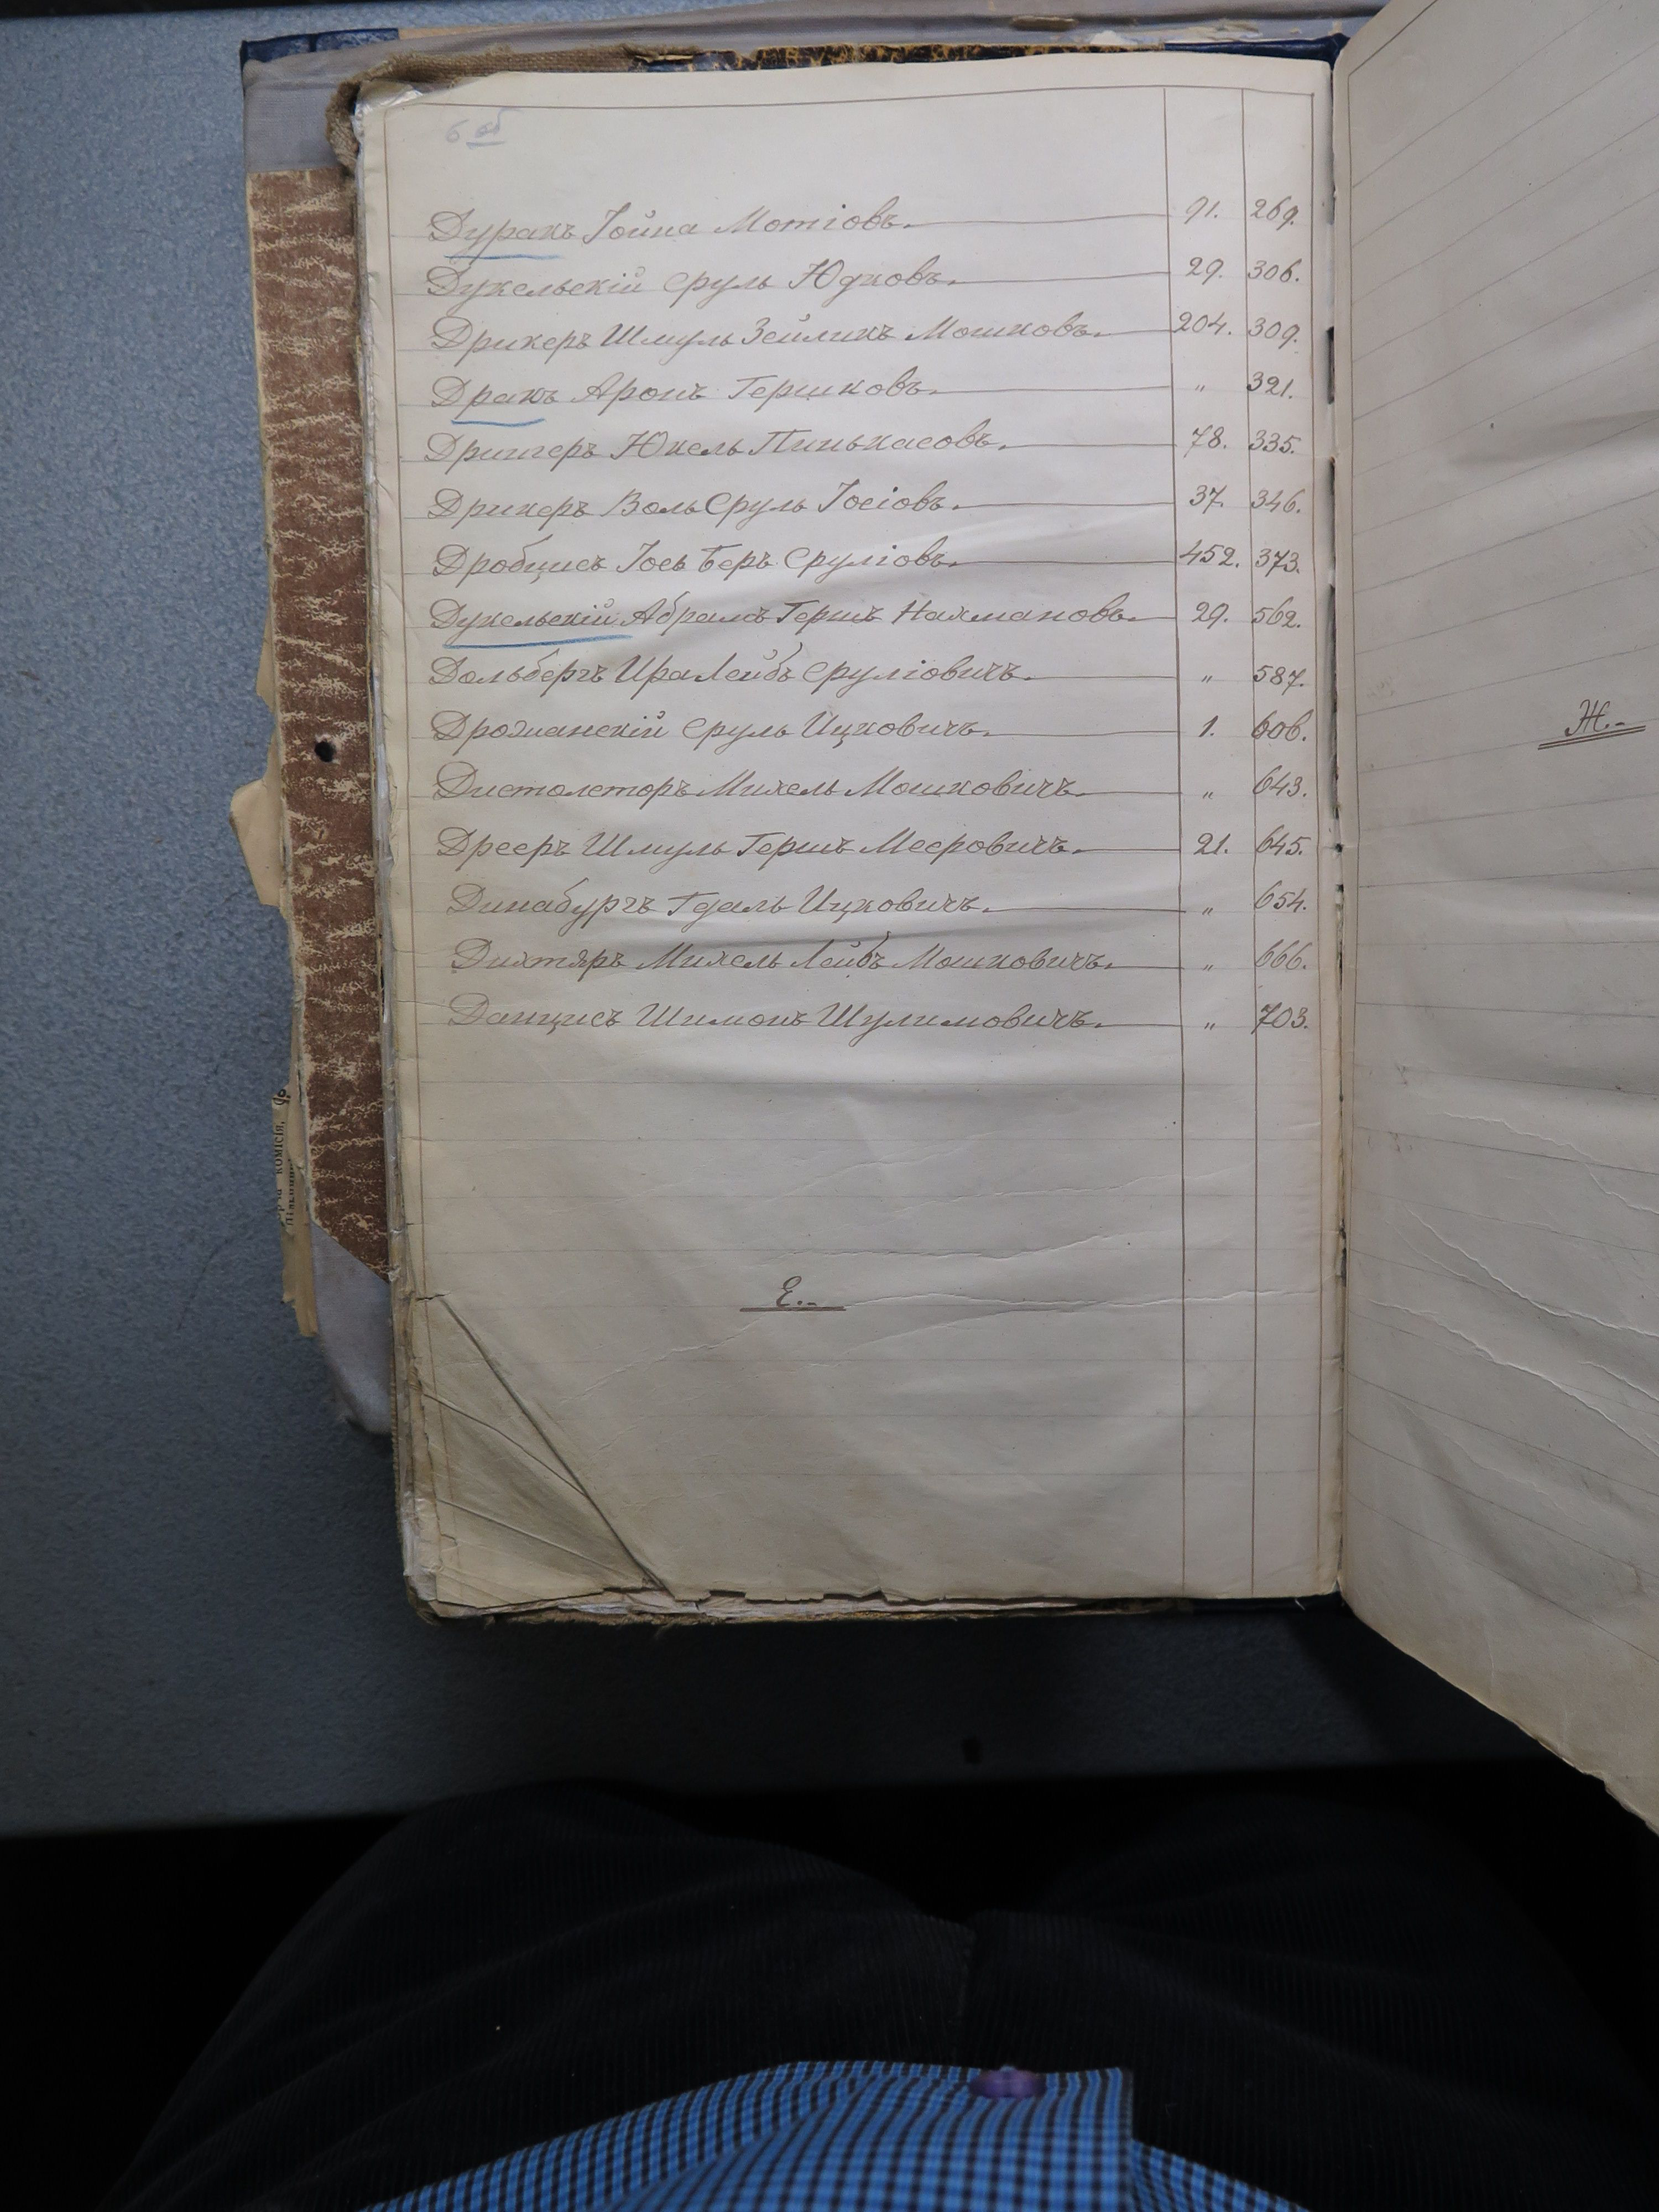 6 об
Дуракъ Іойна Мотіовъ. 91. 269.
Дукельскій Сруль Юдковъ. 29. 306.
Дрикеръ Шмуль Зейликъ Мошковъ. 204. 309.
Дракъ Аронъ Гершковъ. " 321.
Юкель Пинькасовъ. 78. 335.
Дрикеръ Воль Сруль Іосіовъ. 37. 346.
Дробцисъ Іось Беръ Сруліовъ. 452. 373.
Дукельскій Абрамъ Гершъ Нахмановъ. 29. 562.
Дольбергъ Ира Лейбъ Сруліовичъ. " 587.
Сруль Ицковичъ. 1. 606.
Дистолеторъ Михель Мошковичъ. " 643.
Дрееръ Шмуль Гершъ Мееровичъ. 21. 645.
Динабургъ Гдаль Ицковичъ. " 654.
Дихтяръ Михель Лейбъ Мошковичъ. " 666.
Данцисъ Шимонъ Шулимовичъ. " 703.
Е.
Ж.
комісія,